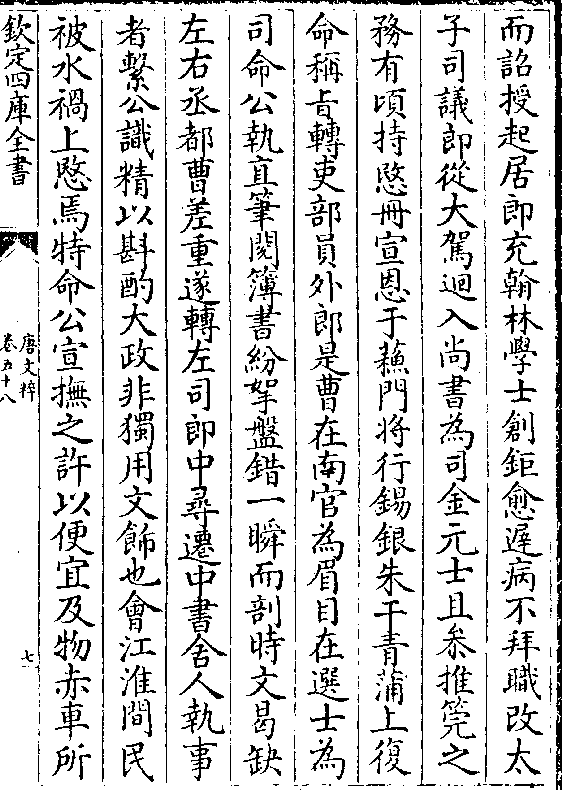 而詔授起居郎充翰林學士創鉅愈遲病不拜職改太
子司議郎從大駕迴入尚書為司金元士且叅推筦之
務有頃持愍冊宣恩于蘓門將行錫銀朱干青蒲上復
命稱㫖轉吏部員外郎是曹在南宫為眉目在選士為
司命公執直筆閱簿書紛拏盤錯一瞬而剖時文曷缺
左右丞都曹差重遂轉左司郎中尋遷中書舍人執事
者繫公識精以斟酌大政非獨用文飾也㑹江淮間民
被水禍上愍焉特命公宣撫之許以便宜及物赤車所
欽定四庫全書
唐文粹
卷五十八
七